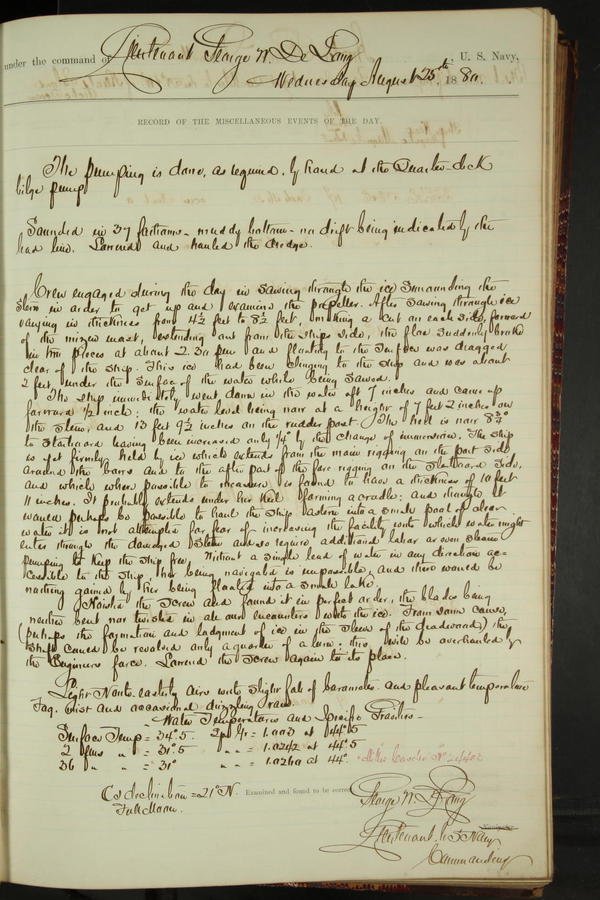 under the command of Lieutenant George W. De Long, U. S. Navy,
Wednesday August 25th, 1880.
RECORD OF THE MISCELLANEOUS EVENTS OF THE DAY.
The pumping is done, as required, by hand at the Quarter-deck
bilge pump
Sounded in 37 fathoms - muddy bottom - no drift being indicated by the
lead line. Lowered and hauled the dredge.
Crew engaged during the day in sawing through the ice surrounding the
stern in order to get up and examine the propeller. After sawing through ice
varying in thickness from 4½ feet to 5½ feet, making a cut on each side, forward
of the mizzen mast, extending out from the ship's side, the floe suddenly broke
in two pieces at about 2.30 pm and floating to the surface was dragged
clear of the ship. This ice had been clinging to the ship and was about
2 feet under the surface of the water while being sawed.
The ship immediately went down in the water aft 7 inches and came up
forward ½ inch; the water level being now at a height of 7 feet 2 inches on
the stem, and 13 feet 9½ inches on the rudder post. The heel is now 8¾°
to starboard having been increased only ¼° by the change of immersion. The ship
is yet firmly held by ice which extends from the main rigging on the port side
around the bows and to the after part of the fore rigging on the starboard side,
and which where possible to measure is found to have a thickness of 10 feet
11 inches. It probably extends under her keel forming a cradle; and though it
would perhaps be possible to haul the ship astern into a small pool of clear
water it is not attempted for fear of increasing the facility with which water might
enter through the damaged stem and so require additional labor or even steam
pumping to keep the ship free. Without a single lead of water in any direction ac-
cessible to the ship, her being navigated is impossible, and there would be
nothing gained by her being floated into a small lake.
Hoisted the screw and found it in perfect order, the blades being
neither bent nor twisted in all our encounters with the ice. From some cause,
(perhaps the formation and lodgment of ice in the sleeve of the deadwood) the
shaft could be revolved only a quarter of a turn; this will be overhauled by
the Engineers force. Lowered the screw again to its place.
Light North-easterly airs with slight fall of barometer and pleasant temperature
Fog, mist and occasional drizzling rain.
- Water Temperatures and Specific Gravities -
Surface Temp = 34°.5. Sp. Gr = 1.003 at 44°.5
2 fms " = 31°.5 " " = 1.0242 at 44°.5
36 " " = 31° " " = 1.0260 at 44°.
☾'s declination = 21° N.
Full Moon.
Examined and found to be correct
George W. De Long
Lieutenant U S Navy
Commanding